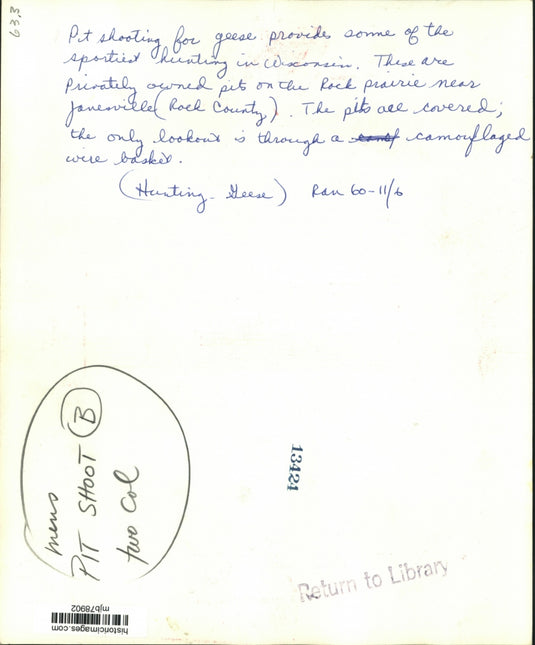 63,3
Pit shooting for geese provides some of the
sportiest hunting in Wisconsin. These are
privately owned pits on the Rock prairie near
Janesville (Rock County). The pits are covered;
the only lookout is through a camouflaged
wire basket.
(Hunting - Geese) Ran 60-11/6
PIT SHOOT B
two col
13424
Return to Library
historicimages.com
mjb78902